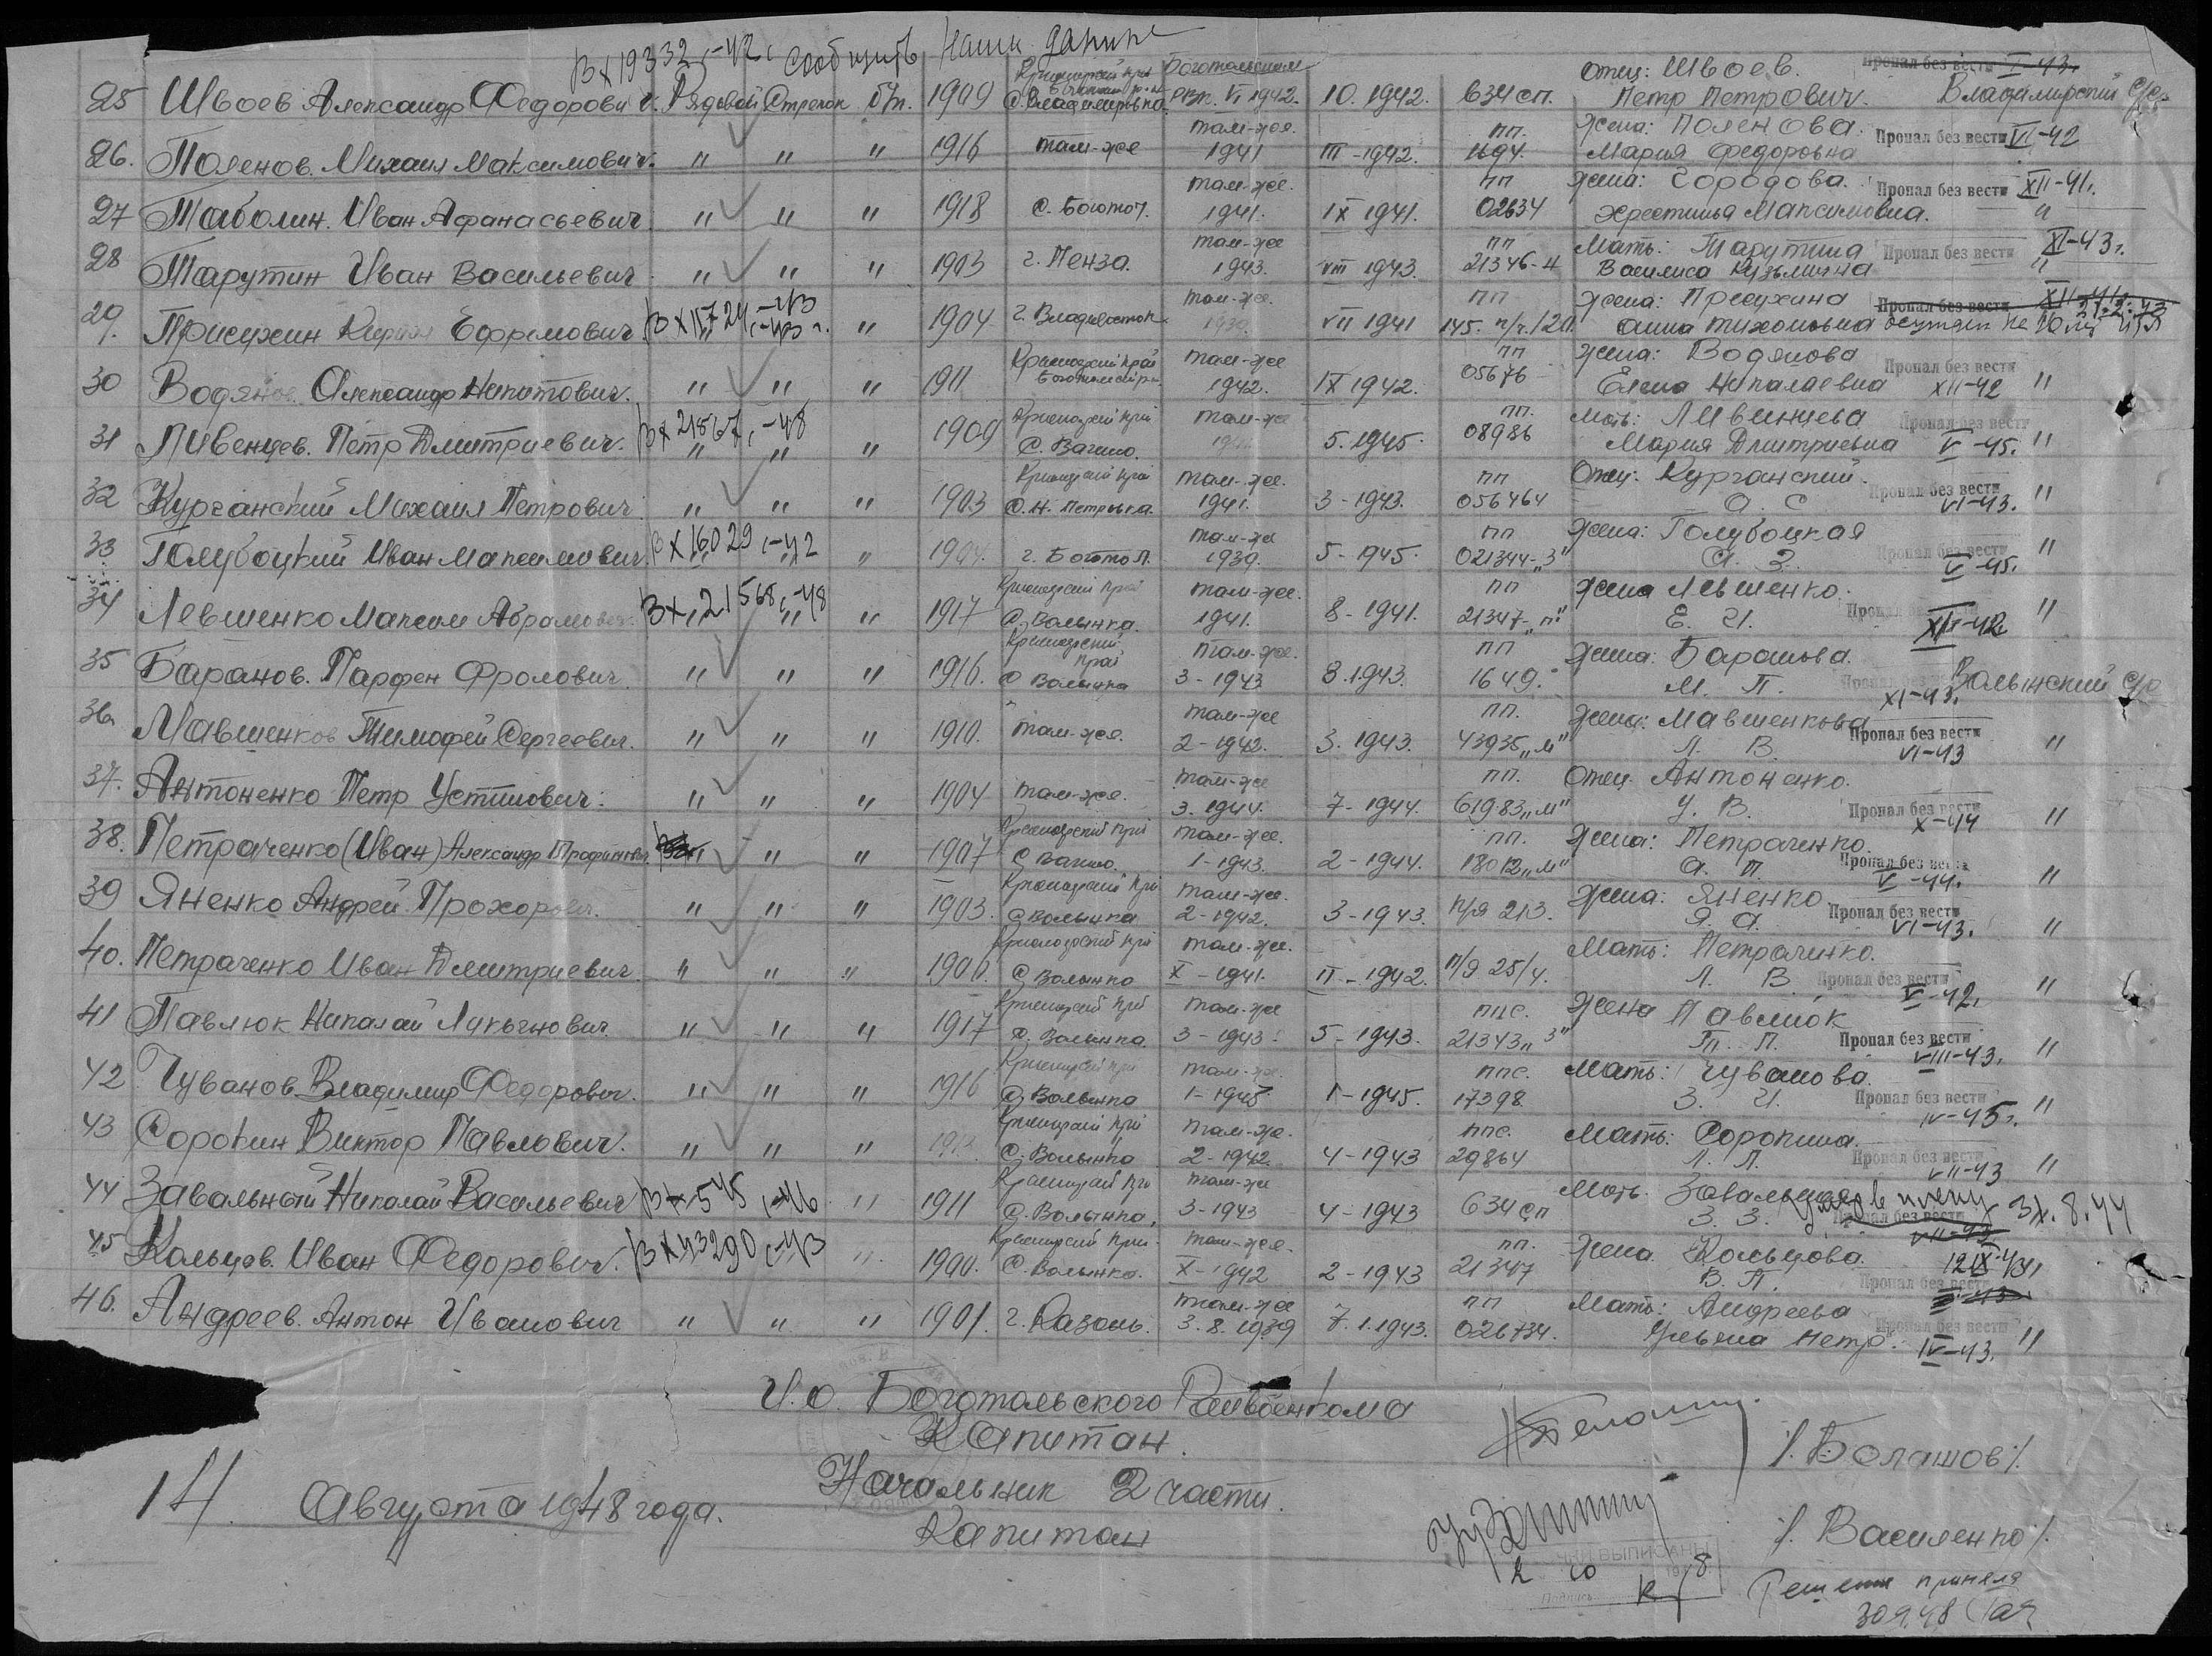 Вх 19332 с-42 г. Сообщить наши данные
25 Швоев Александр Федорович. Рядовой Стрелок б/п. 1909 Красноярский край Боготольский р-н с. Владимировка Боготольским РВК. VI 1942. 10.1942. 634 сп. Отец: Швоев. Петр Петрович. Пропал без вести I-43. Владимирский с/с
26. Поленов. Михаил Максимович. " " " 1916 там-же там-же. 1941 III-1942. пп. 1694. Жена: Поленова. Мария Федоровна Пропал без вести VI-42
27 Таболин. Иван Афанасьевич. " " " 1918 с. Боготол. там-же. 1941. IX 1941. пп 02634 Жена: Городова. Хрестинья Максимовна. Пропал без вести XII-41г. "
28 Тарутин Иван Васильевич. " " " 1903 г. Пенза. там-же 1943. VIII 1943. пп 21346-Н Мать: Тарутина Василиса Кузьминична Пропал без вести XI-43г. "
29. Присухин Ефремович. Вх 15724 с-43 г. " 1904 г. Владивосток там-же. 1939. VII 1941 пп 145. п/я. 120. Жена: Присухина Анна Тихоновна Пропал без вести XII-41г.
30 Водянов. Александр Никитович. " " " 1911 Красноярский край Боготольский р-н там-же 1942. IX 1942. пп 05676 Жена: Водянова Елена Николаевна Пропал без вести XII-42 "
31 Ливенцев. Петр Дмитриевич. Вх 21567, с-48 " " " 1909 Красноярский край с. Вагино. там-же 5.1945. пп. 08986 Мать: Ливенцева Мария Дмитриевна Пропал без вести V-45. "
32 Курганский Михаил Петрович " " " 1903 Красноярский край с. Н. Петровка. там-же. 1941. 3-1943. пп 056464 Отец: Курганский. А. С. Пропал без вести VI-43. "
33 Голубоцкий Иван Максимович. Вх 16029 с-42 " 1904. г. Боготол. там-же 1939. 5-1945. пп 021344-"З" Жена: Голубоцкая А. З. Пропал без вести V-45. "
34 Левшенко Максим Абрамович. Вх 21568, с-48 " 1917 Красноярский край с. Волынка. там-же. 1941. 8-1941. пп 21347-"п" Жена Левшенко. Е. И. Пропал без вести XII-42 "
35 Баранов. Парфен Фролович. " " " 1916. Красноярский край с Волынка там-же. 3-1943 8.1943. пп 1649. Жена: Баранова. М. П. XI-43. Волынский с/с
36 Мавшенков Тимофей Сергеевич. " " " 1910. там-же. там-же 2-1942. 3.1943. пп. 43935 "М" Жена: Мавшенкова Л. В. Пропал без вести VI-43 "
37. Антоненко Петр Устинович. " " " 1904 там-же. там-же 3.1944. 7-1944. пп. 61983 "М" Отец Антоненко. У. В. Пропал без вести X-44 "
38. Петраченко (Иван) Александр Трофимович. " " 1907 Красноярский край с Вагино. там-же. 1-1943. 2-1944. пп. 18012 "М" Жена: Петраченко. А. П. Пропал без вести V-44. "
39 Яненко Андрей Прохорович. " " " 1903. Красноярский край с Волынка там-же. 2-1942. 3-1943. п/я 213. Жена: Яненко Я. А. Пропал без вести VI-43. "
40. Петраченко Иван Дмитриевич " " " 1906. Красноярский край с Волынка там-же. X-1941. II-1942. п/я 25/4. Мать: Петраченко. Л. В. Пропал без вести V-42. "
41 Павлюк Николай Лукьянович. " " " 1917 Красноярский край с. Волынка. там-же 3-1943. 5-1943. ппс. 21343 "З" Жена Павлюк П. П. Пропал без вести VIII-43. "
42 Чуванов Владимир Федорович. " " " 1916 Красноярский край с. Волынка там-же. 1-1945 1-1945. ппс. 17398 Мать: Чуванова. З. И. Пропал без вести IV-45г. "
43 Сорокин Виктор Павлович. " " " Красноярский край с. Волынка там-же. 2-1942. 4-1943 ппс. 29864 Мать: Сорокина. Л. Л. Пропал без вести VII-43 "
44 Завальный Николай Васильевич Вх 545 с-46 " 1911 Красноярский край с. Волынка, там-же 3-1943 4-1943 634 сп Мать. Завальная З. З. умер в плену 3X.8.44 Пропал без вести VII-43
45 Кольцов. Иван Федорович. Вх 43290 с-43 " 1900. Красноярский край с. Волынка. там-же. X-1942 2-1943 пп. 21347 Жена. Кольцова. В. П. 12.IX.43 Пропал без вести
46. Андреев. Антон Иванович " " " 1901. г. Казань. там-же 3.8.1939 7.1.1943. пп 026734. Мать: Андреева Ульяна Петр. Пропал без вести IV-43. "
И.о. Боготольского Райвоенкома
Капитан. /Балашов/.
Начальник 2 части.
Капитан /Василенко/.
14 Августа 1948 года.
ВЫПИСАНЫ
Подпись
Решение приняла
30.9.48